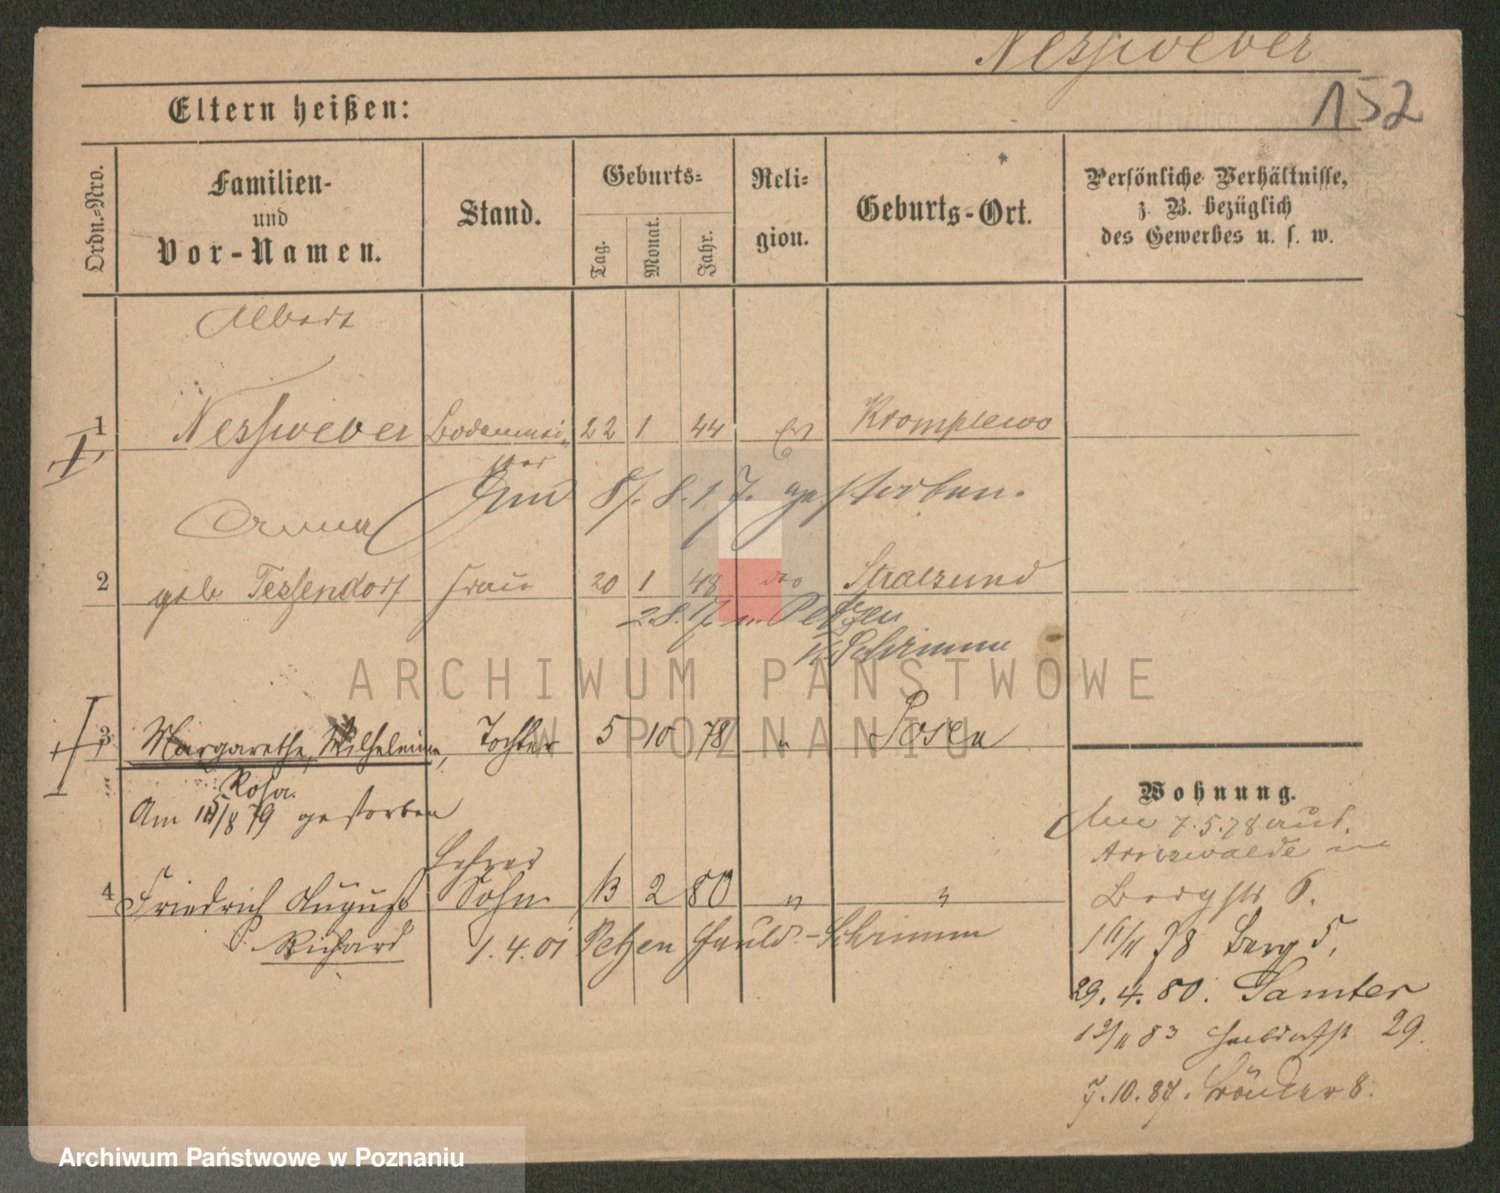 Nesseweber
152
Eltern heißen:
Ordn.-Nro.
Familien- und Vor-Namen.
Stand.
Geburts-
Tag.
Monat.
Jahr.
Reli-
gion.
Geburts-Ort.
Persönliche Verhältnisse,
z. B. bezüglich
des Gewerbes u. s. w.
Albert
1 22 1 44 Kromplewo
8. 17. gestorben.
Anna
2 geb. Tessendorf Frau 20 1 48 Stralsund
28. 17. Petzen
Schrimm
3 Margarethe, Wilhelmine, Tochter 5 10 78 " Posen
Rosa.
Am 15/8 79 gestorben
Lehrer
4 Friedrich August Sohn 13 2 80 " "
Richard 1. 4. 01 Petzen Schrimm
Wohnung.
7. 5. 78 aus
Arnswalde in
Bergstr 6.
16/11 78 Berg 5.
29. 4. 80. Samter
83 29.
7. 10. 87. 8.
ARCHIWUM PAŃSTWOWE
W POZNANIU
Archiwum Państwowe w Poznaniu